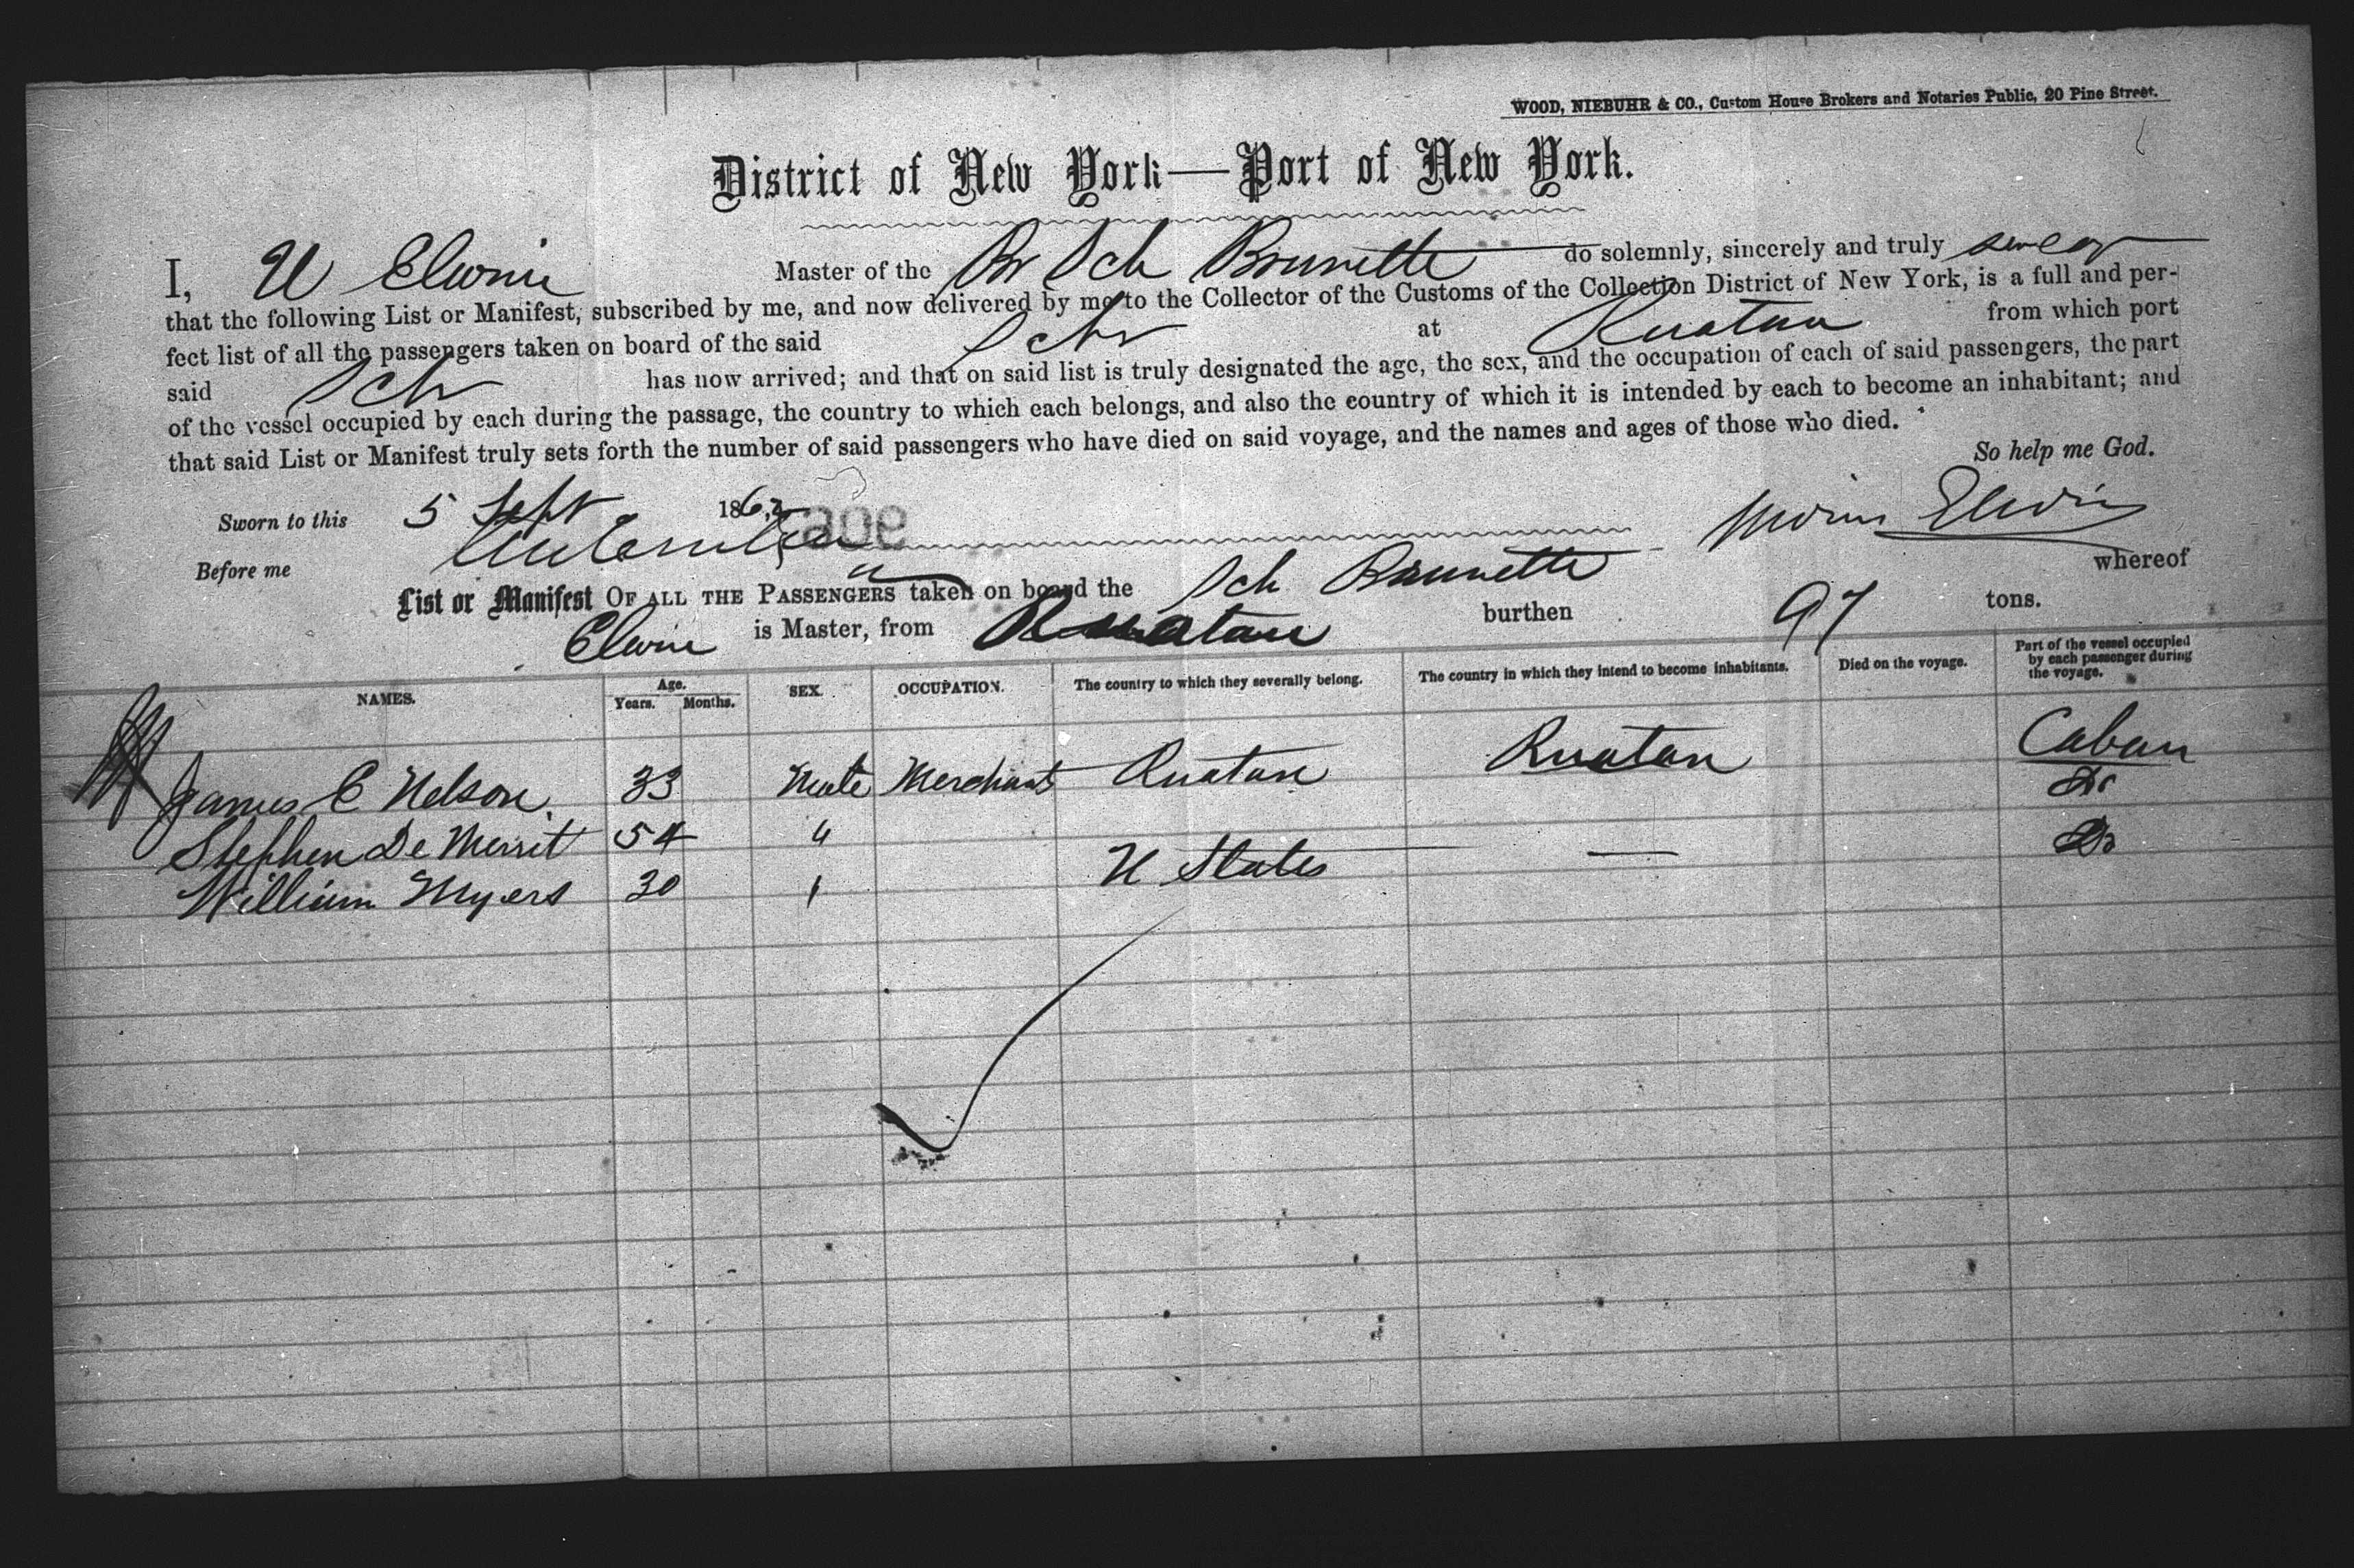 WOOD, NIEBUHR & CO., Custom House Brokers and Notaries Public, 20 Pine Street.
District of New York—Port of New York.
I, U Elwin Master of the Br Sch Brunette do solemnly, sincerely and truly swear
that the following List or Manifest, subscribed by me, and now delivered by me to the Collector of the Customs of the Collection District of New York, is a full and per-
fect list of all the passengers taken on board of the said Schr at Ruatan from which port
said Sch has now arrived; and that on said list is truly designated the age, the sex, and the occupation of each of said passengers, the part
of the vessel occupied by each during the passage, the country to which each belongs, and also the country of which it is intended by each to become an inhabitant; and
that said List or Manifest truly sets forth the number of said passengers who have died on said voyage, and the names and ages of those who died.
So help me God.
Sworn to this 5 Sept 1862
Elwin
Before me
List or Manifest OF ALL THE PASSENGERS taken on board the Sch Brunette whereof
Elwin is Master, from Ruatan burthen 97 tons.
NAMES. Age. Years. Months. SEX. OCCUPATION. The country to which they severally belong. The country in which they intend to become inhabitants. Died on the voyage. Part of the vessel occupied by each passenger during the voyage.
James C Nelson 33 Male Merchant Ruatan Ruatan Caban
Stephen De Merrit 54 " Do
William Myers 30 " U States — Do